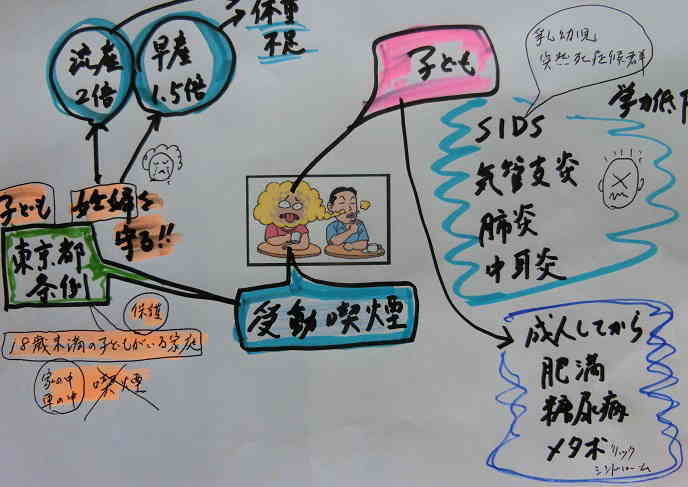 流産
2倍
早産
1.5倍
体重
不足
子ども
乳幼児
突然死症候群
学力低下
SIDS
気管支炎
肺炎
中耳炎
子ども
妊婦を
守る!!
東京都
条例
受動喫煙
保護
18歳未満の子どもがいる家庭
家の中
車の中
喫煙
成人してから
肥満
糖尿病
メタボリック
シンドローム